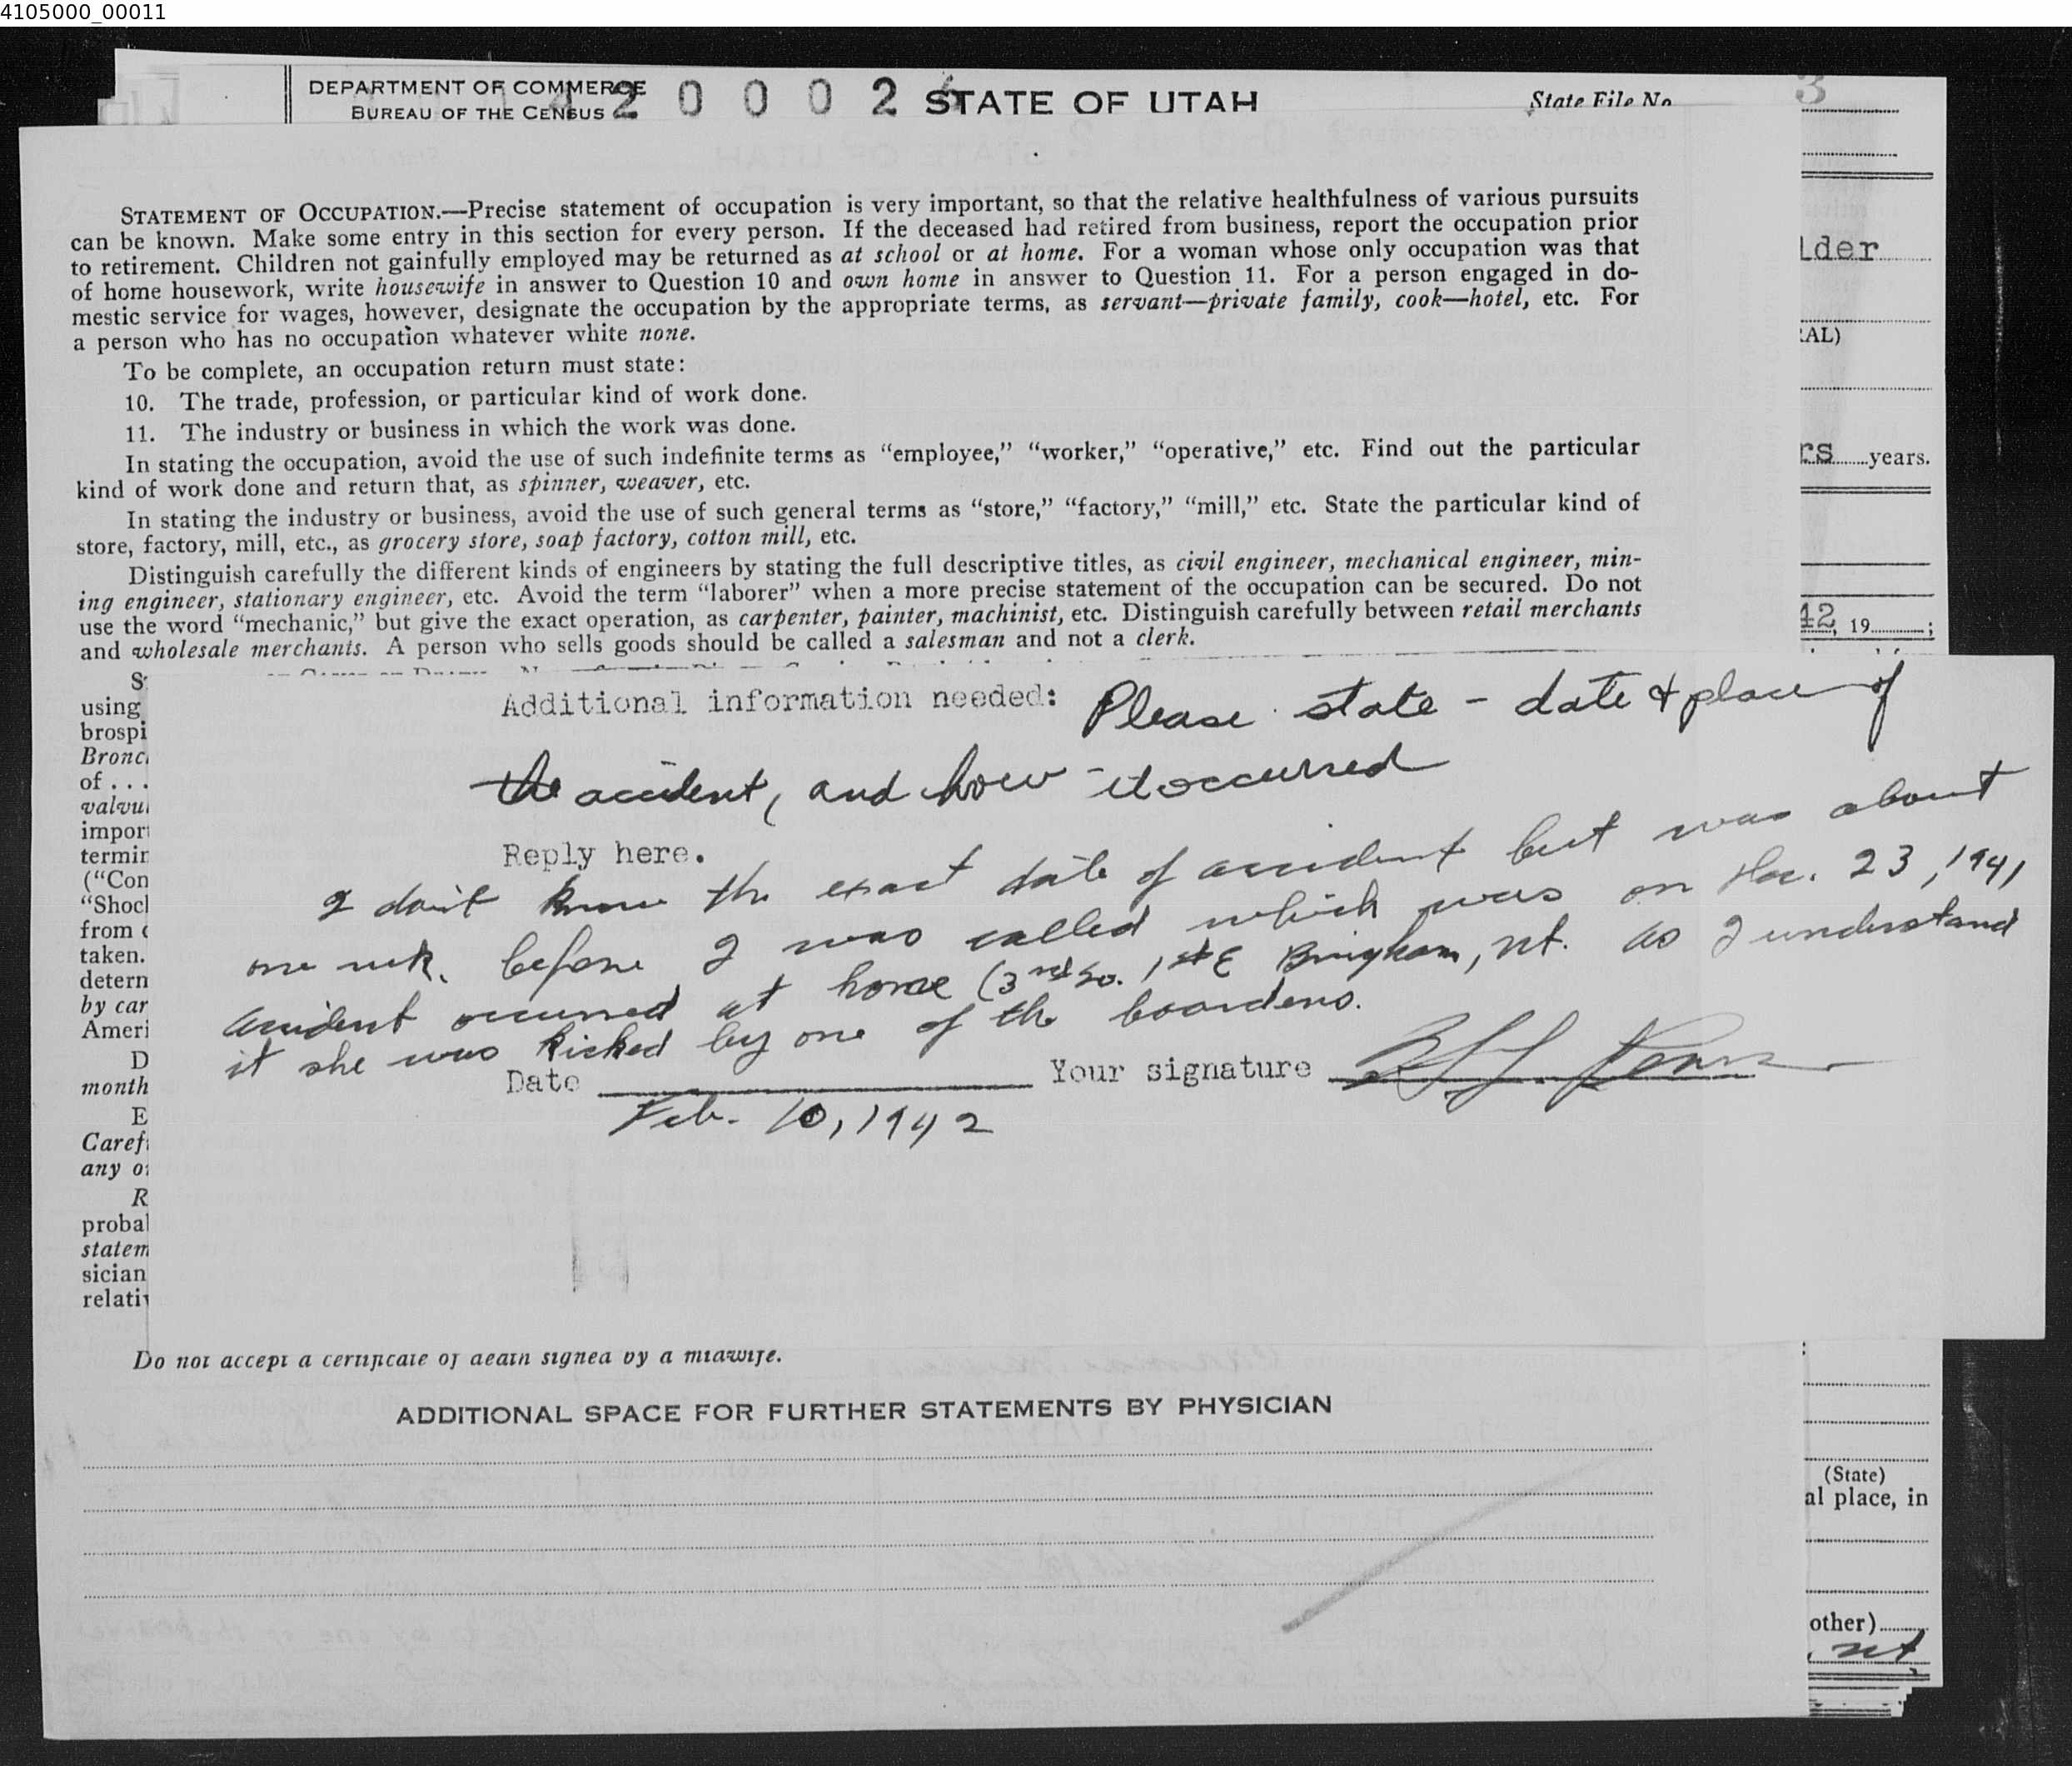 4105000_00011
DEPARTMENT OF COMMERCE
BUREAU OF THE CENSUS
2 0 0 0 2
STATE OF UTAH
State File No
3
STATEMENT OF OCCUPATION.—Precise statement of occupation is very important, so that the relative healthfulness of various pursuits
can be known. Make some entry in this section for every person. If the deceased had retired from business, report the occupation prior
to retirement. Children not gainfully employed may be returned as at school or at home. For a woman whose only occupation was that
of home housework, write housewife in answer to Question 10 and own home in answer to Question 11. For a person engaged in do-
mestic service for wages, however, designate the occupation by the appropriate terms, as servant—private family, cook—hotel, etc. For
a person who has no occupation whatever white none.
To be complete, an occupation return must state:
10. The trade, profession, or particular kind of work done.
11. The industry or business in which the work was done.
In stating the occupation, avoid the use of such indefinite terms as “employee,” “worker,” “operative,” etc. Find out the particular
kind of work done and return that, as spinner, weaver, etc.
In stating the industry or business, avoid the use of such general terms as “store,” “factory,” “mill,” etc. State the particular kind of
store, factory, mill, etc., as grocery store, soap factory, cotton mill, etc.
Distinguish carefully the different kinds of engineers by stating the full descriptive titles, as civil engineer, mechanical engineer, min-
ing engineer, stationary engineer, etc. Avoid the term “laborer” when a more precise statement of the occupation can be secured. Do not
use the word “mechanic,” but give the exact operation, as carpenter, painter, machinist, etc. Distinguish carefully between retail merchants
and wholesale merchants. A person who sells goods should be called a salesman and not a clerk.
lder
AL)
rs years.
42, 19 ;
S
using
brospi
Bronc
of . . .
valvu
impor
termin
(“Con
“Shocl
from
taken.
detern
by car
Ameri
D
month
E
Caref
any o
R
probal
statem
sician
relativ
Additional information needed: Please state - date & place of
the accident, and how it occurred
Reply here.
I don't know the exact date of accident but was about
one wk. before I was called which was on Dec. 23, 1941
accident occurred at home (3rd So. 1st E Brigham, Ut. as I understand
it she was kicked by one of the boarders.
Date Feb. 10, 1942
Your signature
Do not accept a certificate of death signed by a midwife.
ADDITIONAL SPACE FOR FURTHER STATEMENTS BY PHYSICIAN
(State)
al place, in
other)
, Ut.